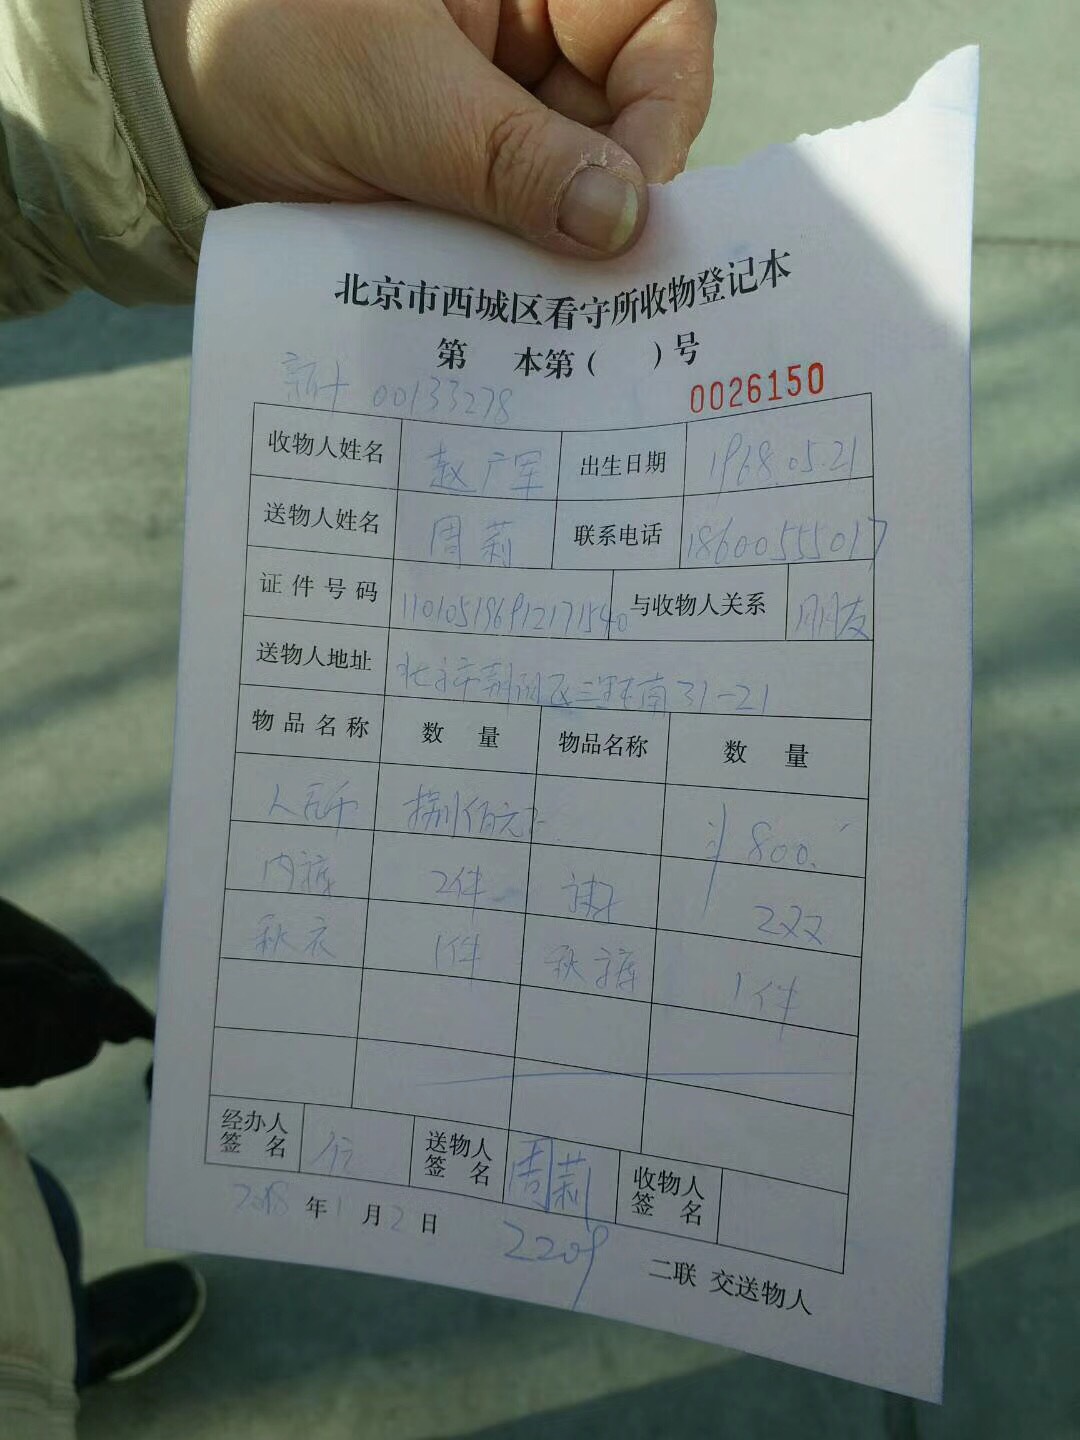 北京市西城区看守所收物登记本
第 本第( )号
00133278
0026150
收物人姓名 赵广军 出生日期 1968.05.21
送物人姓名 周莉 联系电话 18600555017
证件号码 110105196912171540 与收物人关系 朋友
送物人地址 北京市朝阳区三里屯南31-21
物品名称 数量 物品名称 数量
人民币 捌佰元 800.
内裤 2件 袜子 2双
秋衣 1件 秋裤 1件
经办人签名 送物人签名 周莉 收物人签名
2018年1月2日
2209
二联 交送物人